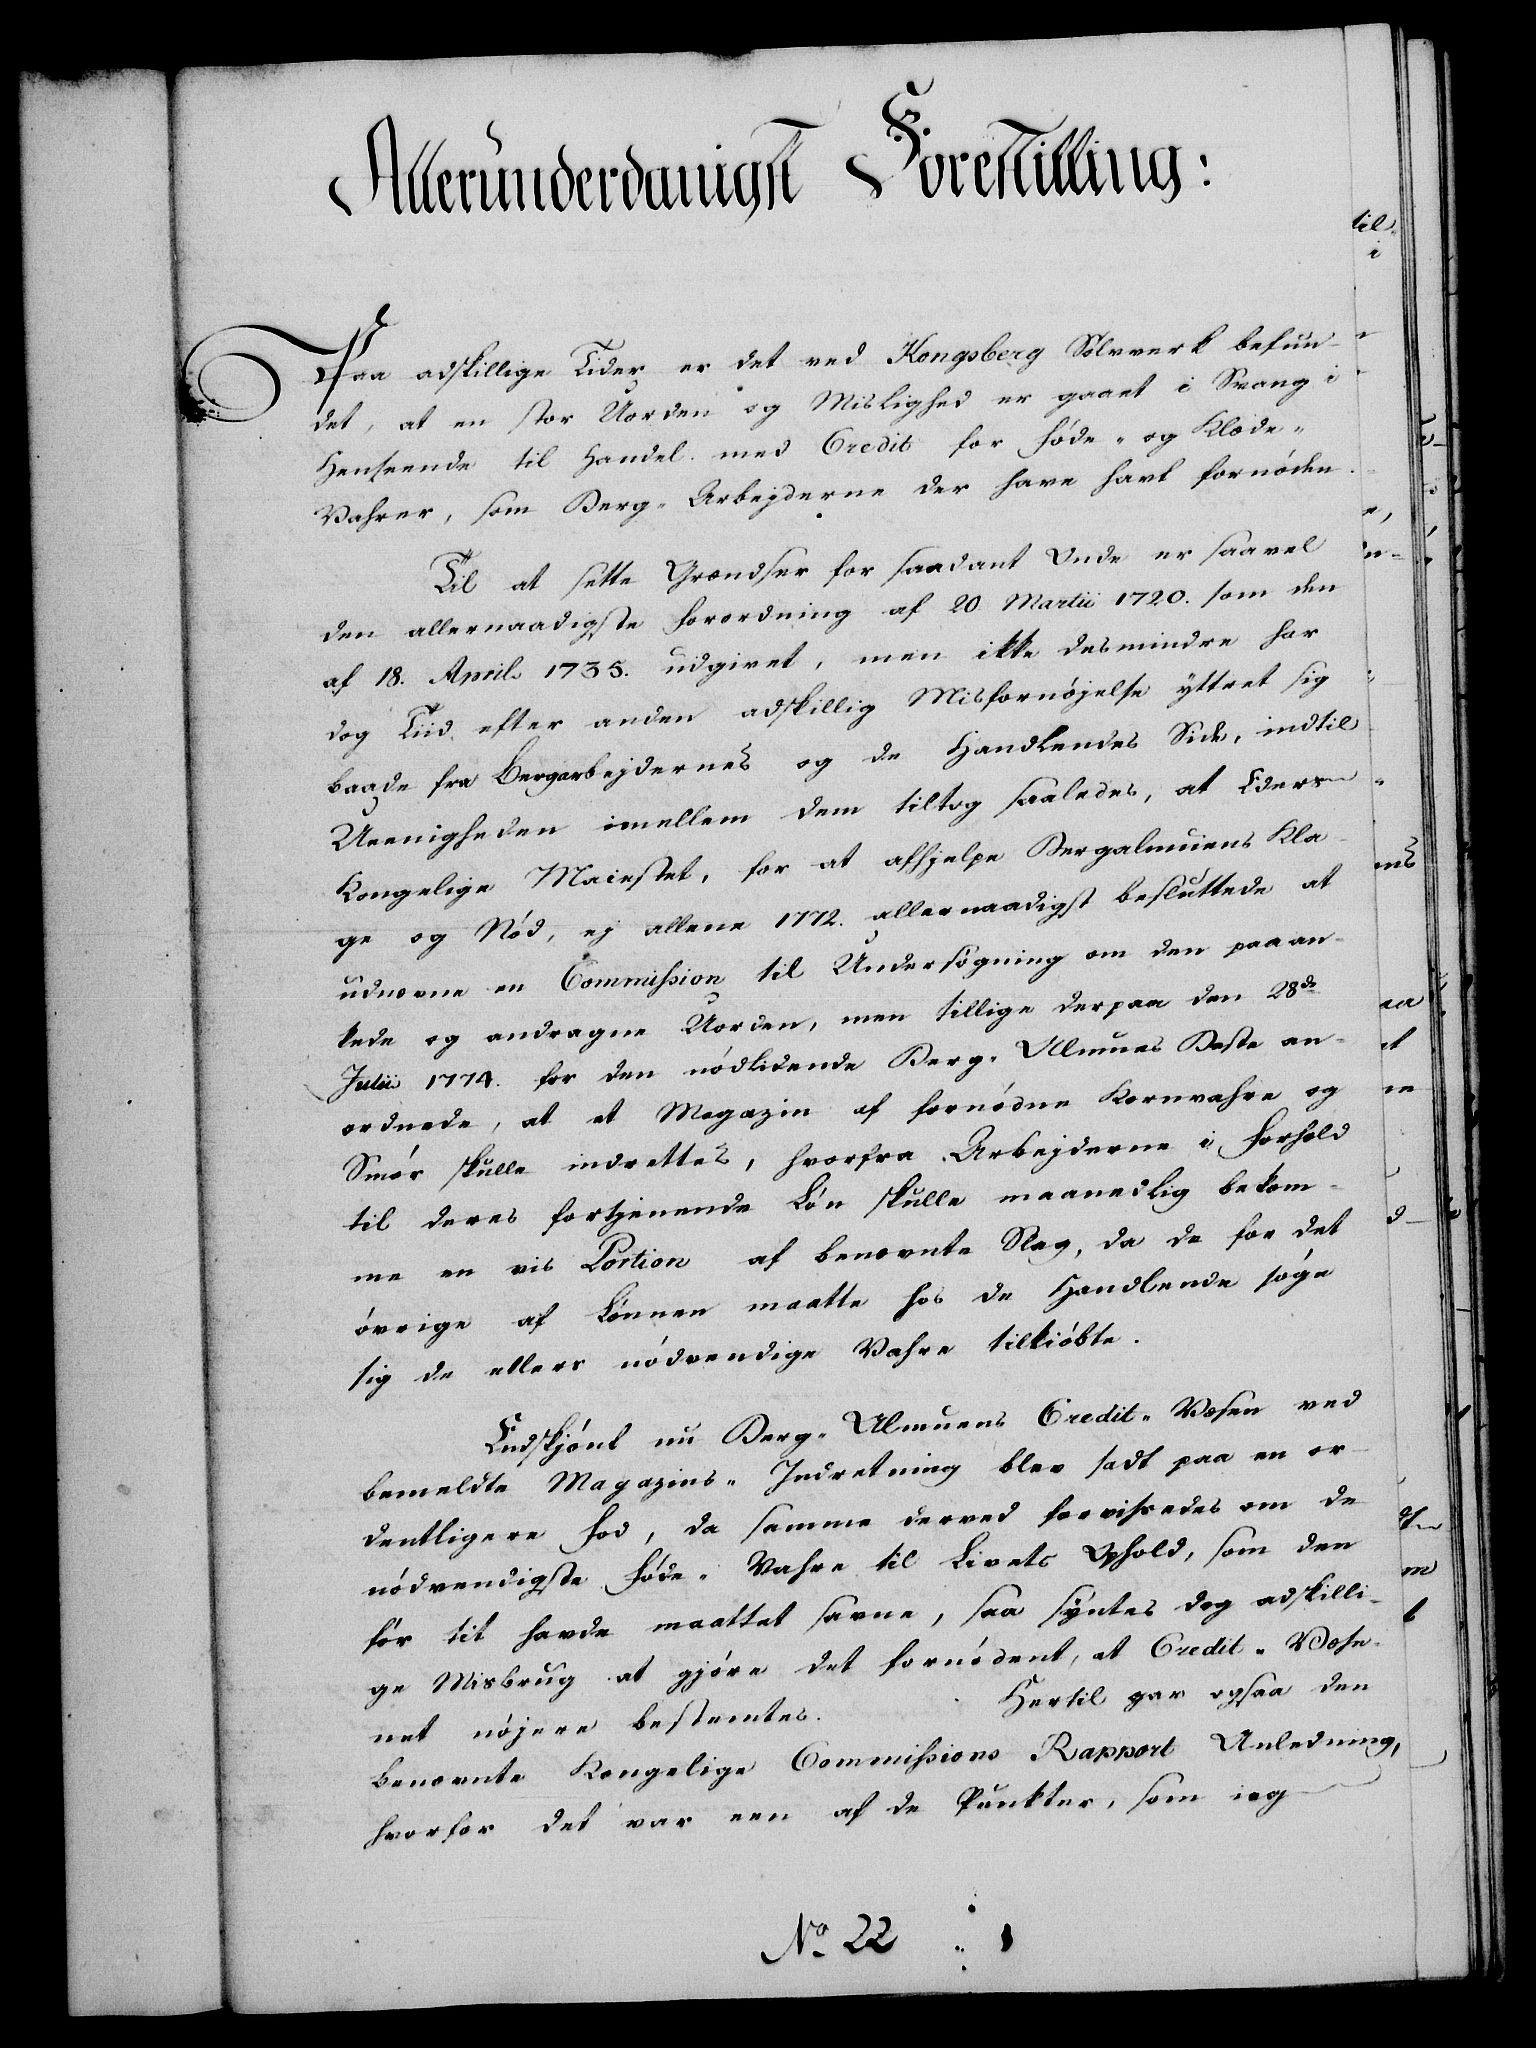 Allerunderdanigst Forestilling:
Paa adskillige Tider er det ved Kongsberg Sølvverk befun-
det, at en stor Uorden og Mislighed er gaaet i Svang i
Henseende til Handel med Credit for Føde- og Klæde-
Vahrer, som Berg-Arbejderne der have havt fornøden.
Til at sette Grændser for saadant Onde er saavel
den allernaadigste Forordning af 20 Martii 1720. som den
af 18. April 1735. udgivet, men ikke desmindre har
dog Tiid efter anden adskillig Misfornøjelse yttret sig
baade fra Bergarbejdernes og de Handlendes Side, indtil
Ueenigheden imellem dem tiltog saaledes, at Eders
Kongelige Maiestet, for at afhjelpe Bergalmuens Kla-
ge og Nød, ej allene 1772. allernaadigst besluttede at
udnævne en Commission til Undersøgning om den paaan-
kede og andragne Uorden, men tillige derpaa den 28de
Julii 1774. for den nødlidende Berg-Almues Beste an-
ordnede, at et Magazin af fornødne Kornvahre og
Smør skulle indrettes, hvorfra Arbejderne i Forhold
til deres fortjenende Løn skulle maanedlig bekom-
me en vis Portion af benævnte Slag, da de for det
øvrige af Lønnen maatte hos de Handlende søge
sig de ellers nødvendige Vahre tilkiøbte.
Endskjønt nu Berg-Almuens Credit-Væsen ved
bemeldte Magazins-Indretning blev sadt paa en or-
dentligere Fod, da samme derved forvissedes om de
nødvendigste Føde-Vahre til Livets Ophold, som den
før tit havde maattet savne, saa syntes dog adskilli-
ge Misbrug at gjøre det fornødent, at Credit-Væse-
net nøjere bestemtes. Hertil gav ogsaa den
benævnte Kongelige Commissions Rapport Anledning,
hvorfor det var een af de Punkter, som ieg
No 22